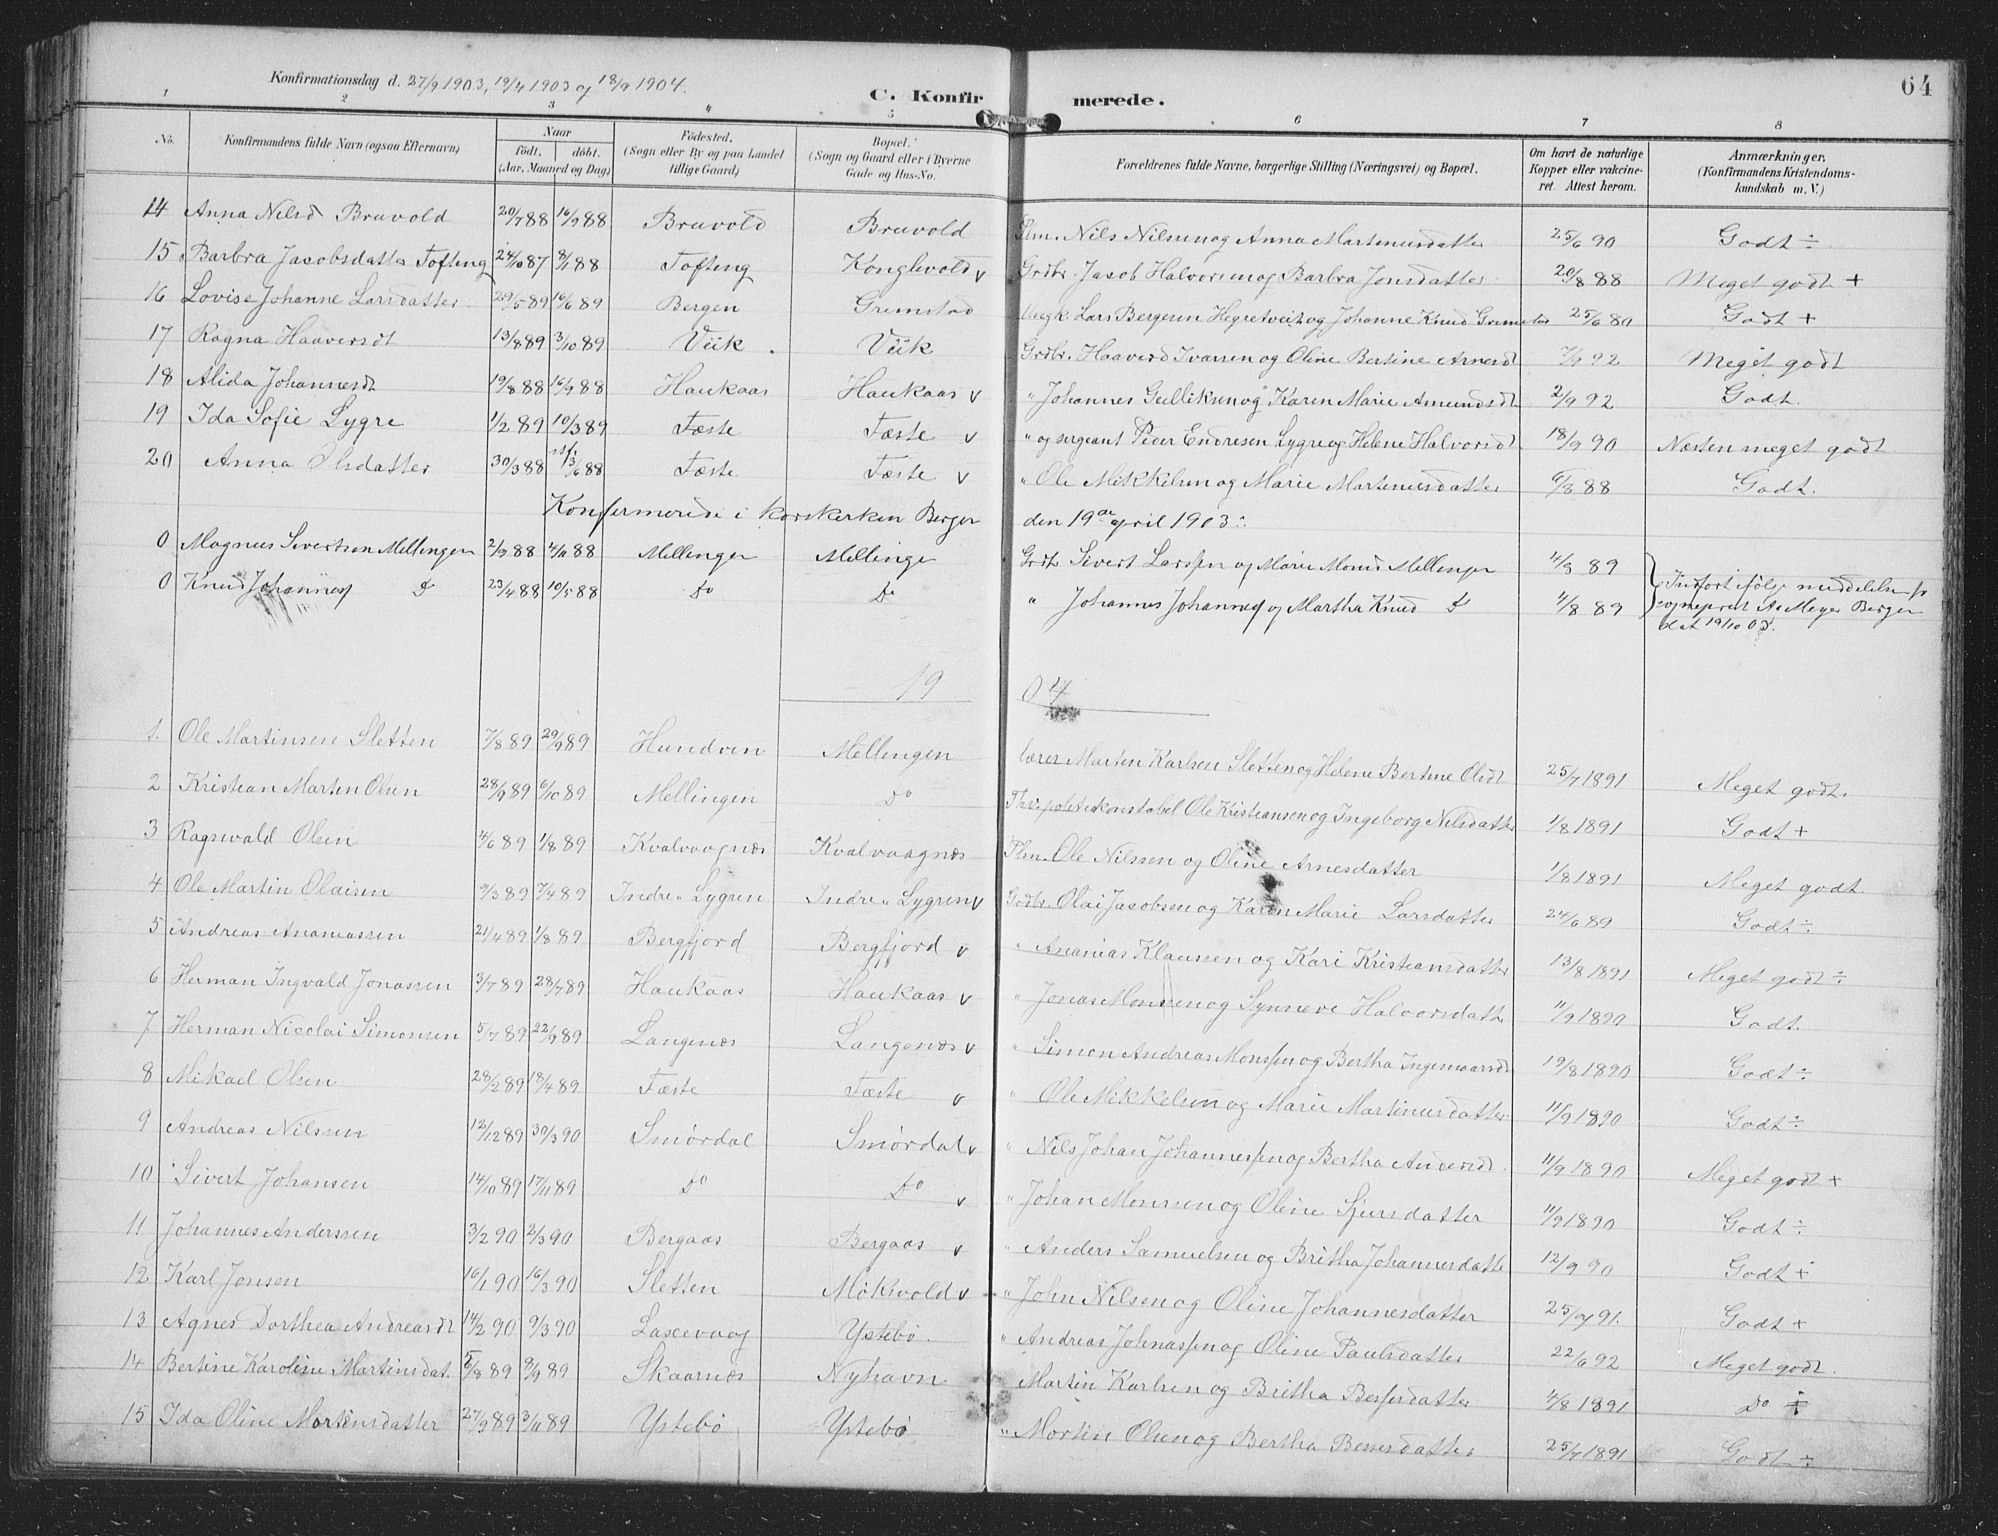 Konfirmationsdag d. 27/9 1903, 19/4 1903 og 18/9 1904.
C. Konfirmerede.
64
1 2 3 4 5 6 7 8
No. Konfirmandens fulde Navn (ogsaa Efternavn) Naar födt. döbt. (Aar, Maaned og Dag) Födested. (Sogn eller By og paa Landet tillige Gaard) Bopæl. (Sogn og Gaard eller i Byerne Gade og Hus-No. Forældrenes fulde Navne, borgerlige Stilling (Næringsvei) og Bopæl. Om havt de naturlige Kopper eller vakcineret. Attest herom. Anmærkninger. (Konfirmandens Kristendomskundskab m. V.)
14 Anna Nilsd Bruvold 20/7 88 16/9 88 Bruvold Bruvold Plm. Nils Nilsen og Anna Martinusdatter 25/6 90 Godt ÷
15 Barbra Jacobsdatter Tofteng 24/10 87 8/1 88 Tofteng Konglevold v Grdbr. Jacob Halvorsen og Barbra Jonsdatter 20/8 88 Meget godt +
16 Lovise Johanne Larsdatter 29/5 89 16/6 89 Bergen Gremstad Ungk. Lars Bergesen Hegretveit og Johanne Knud 25/6 80 Godt +
17 Ragna Haaversdt 13/8 89 3/10 89 Viik Viik Grdbr. Haaverd Ivarsen og Oline Bertine Arnesdt 7/9 92 Meget godt
18 Alida Johannesdt 19/8 88 16/9 88 Haukaas Haukaas v " Johannes Gulliksen og Karen Marie Amundsdt 2/9 92 Godt.
19 Ida Sofie Lygre 1/2 89 10/3 89 Fæste Fæste v " og sergeant Peder Endresen Lygre og Helene Halvorsdt 18/9 90 Næsten meget godt
20 Anna Olsdatter 30/3 88 3/6 88 Fæste Fæste v " Ole Mikkelsen og Marie Martinusdatter 6/8 88 Godt.
Konfirmerede i Korskirken Bergen den 19de april 1903:
0 Magnus Sivertsen Mellingen 2/9 88 4/11 88 Mellingen Mellinge Grdb Sivert Larssen og Marie Mons Mellingen 4/8 89
0 Knud Johannes Do 23/4 88 10/5 88 Do Do " Johannes Johannes og Martha Knud Do 4/8 89
Indført ifølge meddelelse fr sogneprest A. Meyer Bergen dat 19/10 03.
19 04
1. Ole Martinsen Sletten 7/8 89 29/9 89 Hundven Mellingen lærer Martin Karlsen Sletten og Helene Bertine Olsdt 25/7 1891 Meget godt.
2 Kristian Martin Olsen 28/9 89 6/10 89 Mellingen Do politikonstabel Ole Kristiansen og Ingeborg Nilsdatter 1/8 1891 Godt +
3 Ragnvald Olsen 4/6 89 1/8 89 Kvalvaagnæs Kvalvaagnæs Plm. Ole Nilssen og Oline Arnesdatter 1/8 1891 Meget godt.
4 Ole Martin Olaisen 9/3 89 7/4 89 Indre Lygren Indre Lygren v Grdbr. Olai Jacobsen og Karen Marie Larsdatter 24/6 89 Godt ÷
5 Andreas Ananiassen 21/4 89 1/8 89 Bergfjord Bergfjord v " Ananias Klausen og Kari Kristiansdatter 13/8 1891 Meget godt ÷
6 Herman Ingvald Jonassen 3/7 89 28/7 89 Haukaas Haukaas v " Jonas Monsen og Synneve Halvorsdatt 11/9 1890 Godt.
7 Herman Nicolai Simonsen 5/7 89 22/9 89 Langenæs Langenæs v " Simon Andreas Monsen og Bertha Ingemaarsdt 19/8 1890 Godt ÷
8 Mikael Olsen 28/2 89 18/4 89 Fæste Fæste v " Ole Mikkelsen og Marie Martinusdatter 11/9 1890 Godt ÷
9 Andreas Nilssen 12/12 89 30/3 90 Smørdal Smørdal v " Nils Johan Johannessen og Bertha Andersdt. 11/9 1890 Meget godt +
10 Sivert Johansen 14/10 89 17/11 89 Do Do v " Johan Monssen og Oline Sjursdatter 11/9 1890 Godt ÷
11 Johannes Anderssen 3/2 90 2/3 90 Bergaas Bergaas v " Anders Samuelsen og Britha Johannesdatte 12/9 90 Godt +
12 Karl Jonsen 16/1 90 16/3 90 Sletten Møkevold v " John Nilsen og Oline Johannesdatter 25/7 91. Godt +
13 Agnes Dorthea Andreasdt 14/2 90 9/3 90 Laxevaag Ystebø. " Andreas Johnassen og Oline Paulsdatter 22/6 92 Meget godt.
14 Bertine Karoline Martinsdat. 5/8 89 9/9 89 Skaarnæs Nyhavn Martin Karlsen og Britha Bessesdatter 4/8 1891 Do ÷
15 Ida Oline Martinsdatter 27/9 89 3/11 89 Ystebø Ystebø " Martin Olsen og Bertha Bessesdatter 25/7 1891 Godt ÷